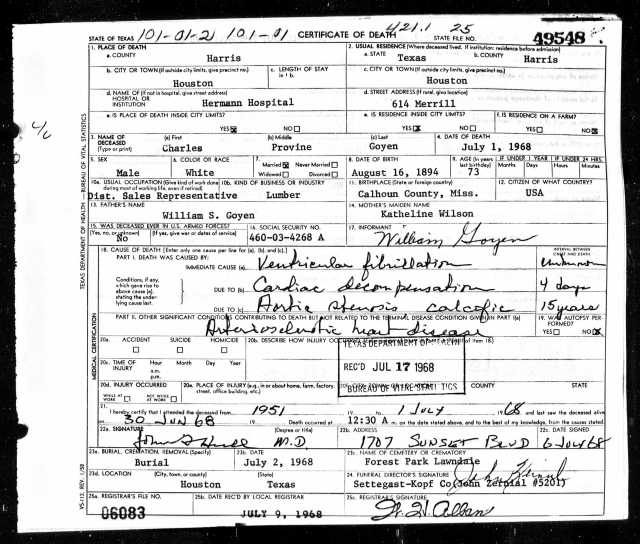 421.1 25
STATE OF TEXAS 101-01-21 101-01 CERTIFICATE OF DEATH STATE FILE NO. 49548
1. PLACE OF DEATH
a. COUNTY
Harris
2. USUAL RESIDENCE (Where deceased lived. If institution: residence before admission)
a. STATE
Texas
b. COUNTY
Harris
b. CITY OR TOWN (If outside city limits, give precinct no.)
Houston
c. LENGTH OF STAY in 1 b.
c. CITY OR TOWN (If outside city limits, give precinct no.)
Houston
d. NAME OF (If not in hospital, give street address) HOSPITAL OR INSTITUTION
Hermann Hospital
d. STREET ADDRESS (If rural, give location)
614 Merrill
e. IS PLACE OF DEATH INSIDE CITY LIMITS?
YES X NO
e. IS RESIDENCE INSIDE CITY LIMITS?
YES X NO
f. IS RESIDENCE ON A FARM?
YES NO X
3. NAME OF DECEASED (Type or print)
(a) First
Charles
(b) Middle
Provine
(c) Last
Goyen
4. DATE OF DEATH
July 1, 1968
5. SEX
Male
6. COLOR OR RACE
White
7. Married X Never Married
Widowed Divorced
8. DATE OF BIRTH
August 16, 1894
9. AGE (In years last birthday)
73
IF UNDER 1 YEAR
Months Days
IF UNDER 24 HRS.
Hours Min.
10a. USUAL OCCUPATION (Give kind of work done during most of working life, even if retired)
Dist. Sales Representative
10b. KIND OF BUSINESS OR INDUSTRY
Lumber
11. BIRTHPLACE (State or foreign country)
Calhoun County, Miss.
12. CITIZEN OF WHAT COUNTRY?
USA
13. FATHER'S NAME
William S. Goyen
14. MOTHER'S MAIDEN NAME
Katheline Wilson
15. WAS DECEASED EVER IN U.S. ARMED FORCES?
(Yes, no, or unknown) (If yes, give war or dates of service)
No
16. SOCIAL SECURITY NO.
460-03-4268 A
17. INFORMANT
William Goyen
18. CAUSE OF DEATH [Enter only one cause per line for (a), (b), and (c).]
INTERVAL BETWEEN ONSET AND DEATH
PART I. DEATH WAS CAUSED BY:
IMMEDIATE CAUSE (a) Ventricular fibrillation unknown
Conditions, if any, which gave rise to above cause (a), stating the underlying cause last.
DUE TO (b) Cardiac decompensation 4 days
DUE TO (c) Aortic stenosis calcific 15 years
PART II. OTHER SIGNIFICANT CONDITIONS CONTRIBUTING TO DEATH BUT NOT RELATED TO THE TERMINAL DISEASE CONDITION GIVEN IN PART I(a)
Arteriosclerotic heart disease
19. WAS AUTOPSY PERFORMED?
YES NO X
20a. ACCIDENT SUICIDE HOMICIDE
20b. DESCRIBE HOW INJURY OCCURRED
TEXAS DEPARTMENT OF HEALTH
REC'D JUL 17 1968
BUREAU OF VITAL STATISTICS
20c. TIME OF INJURY
Hour Month Day Year
a.m.
p.m.
20d. INJURY OCCURRED
WHILE AT WORK NOT WHILE AT WORK
20e. PLACE OF INJURY (e.g., in or about home, farm, factory, street, office building, etc.)
21. I hereby certify that I attended the deceased from 1951 19 to 1 July 1968 and last saw the deceased alive
on 30 JUN 68 19 Death occurred at 12:30 A m. on the date stated above, and to the best of my knowledge, from the causes stated.
22a. SIGNATURE (Degree or title)
M.D.
22b. ADDRESS
1707 SUNSET BLVD
22c. DATE SIGNED
6 JULY 68
23a. BURIAL, CREMATION, REMOVAL (Specify)
Burial
23b. DATE
July 2, 1968
23c. NAME OF CEMETERY OR CREMATORY
Forest Park Lawndale
23d. LOCATION (City, town, or county) (State)
Houston Texas
24. FUNERAL DIRECTOR'S SIGNATURE
Settegast-Kopf Co (John #5201)
25a. REGISTRAR'S FILE NO.
06083
25b. DATE REC'D BY LOCAL REGISTRAR
JULY 9, 1968
25c. REGISTRAR'S SIGNATURE
TEXAS DEPARTMENT OF HEALTH — BUREAU OF VITAL STATISTICS
MEDICAL CERTIFICATION
VS-112, REV. 1/58